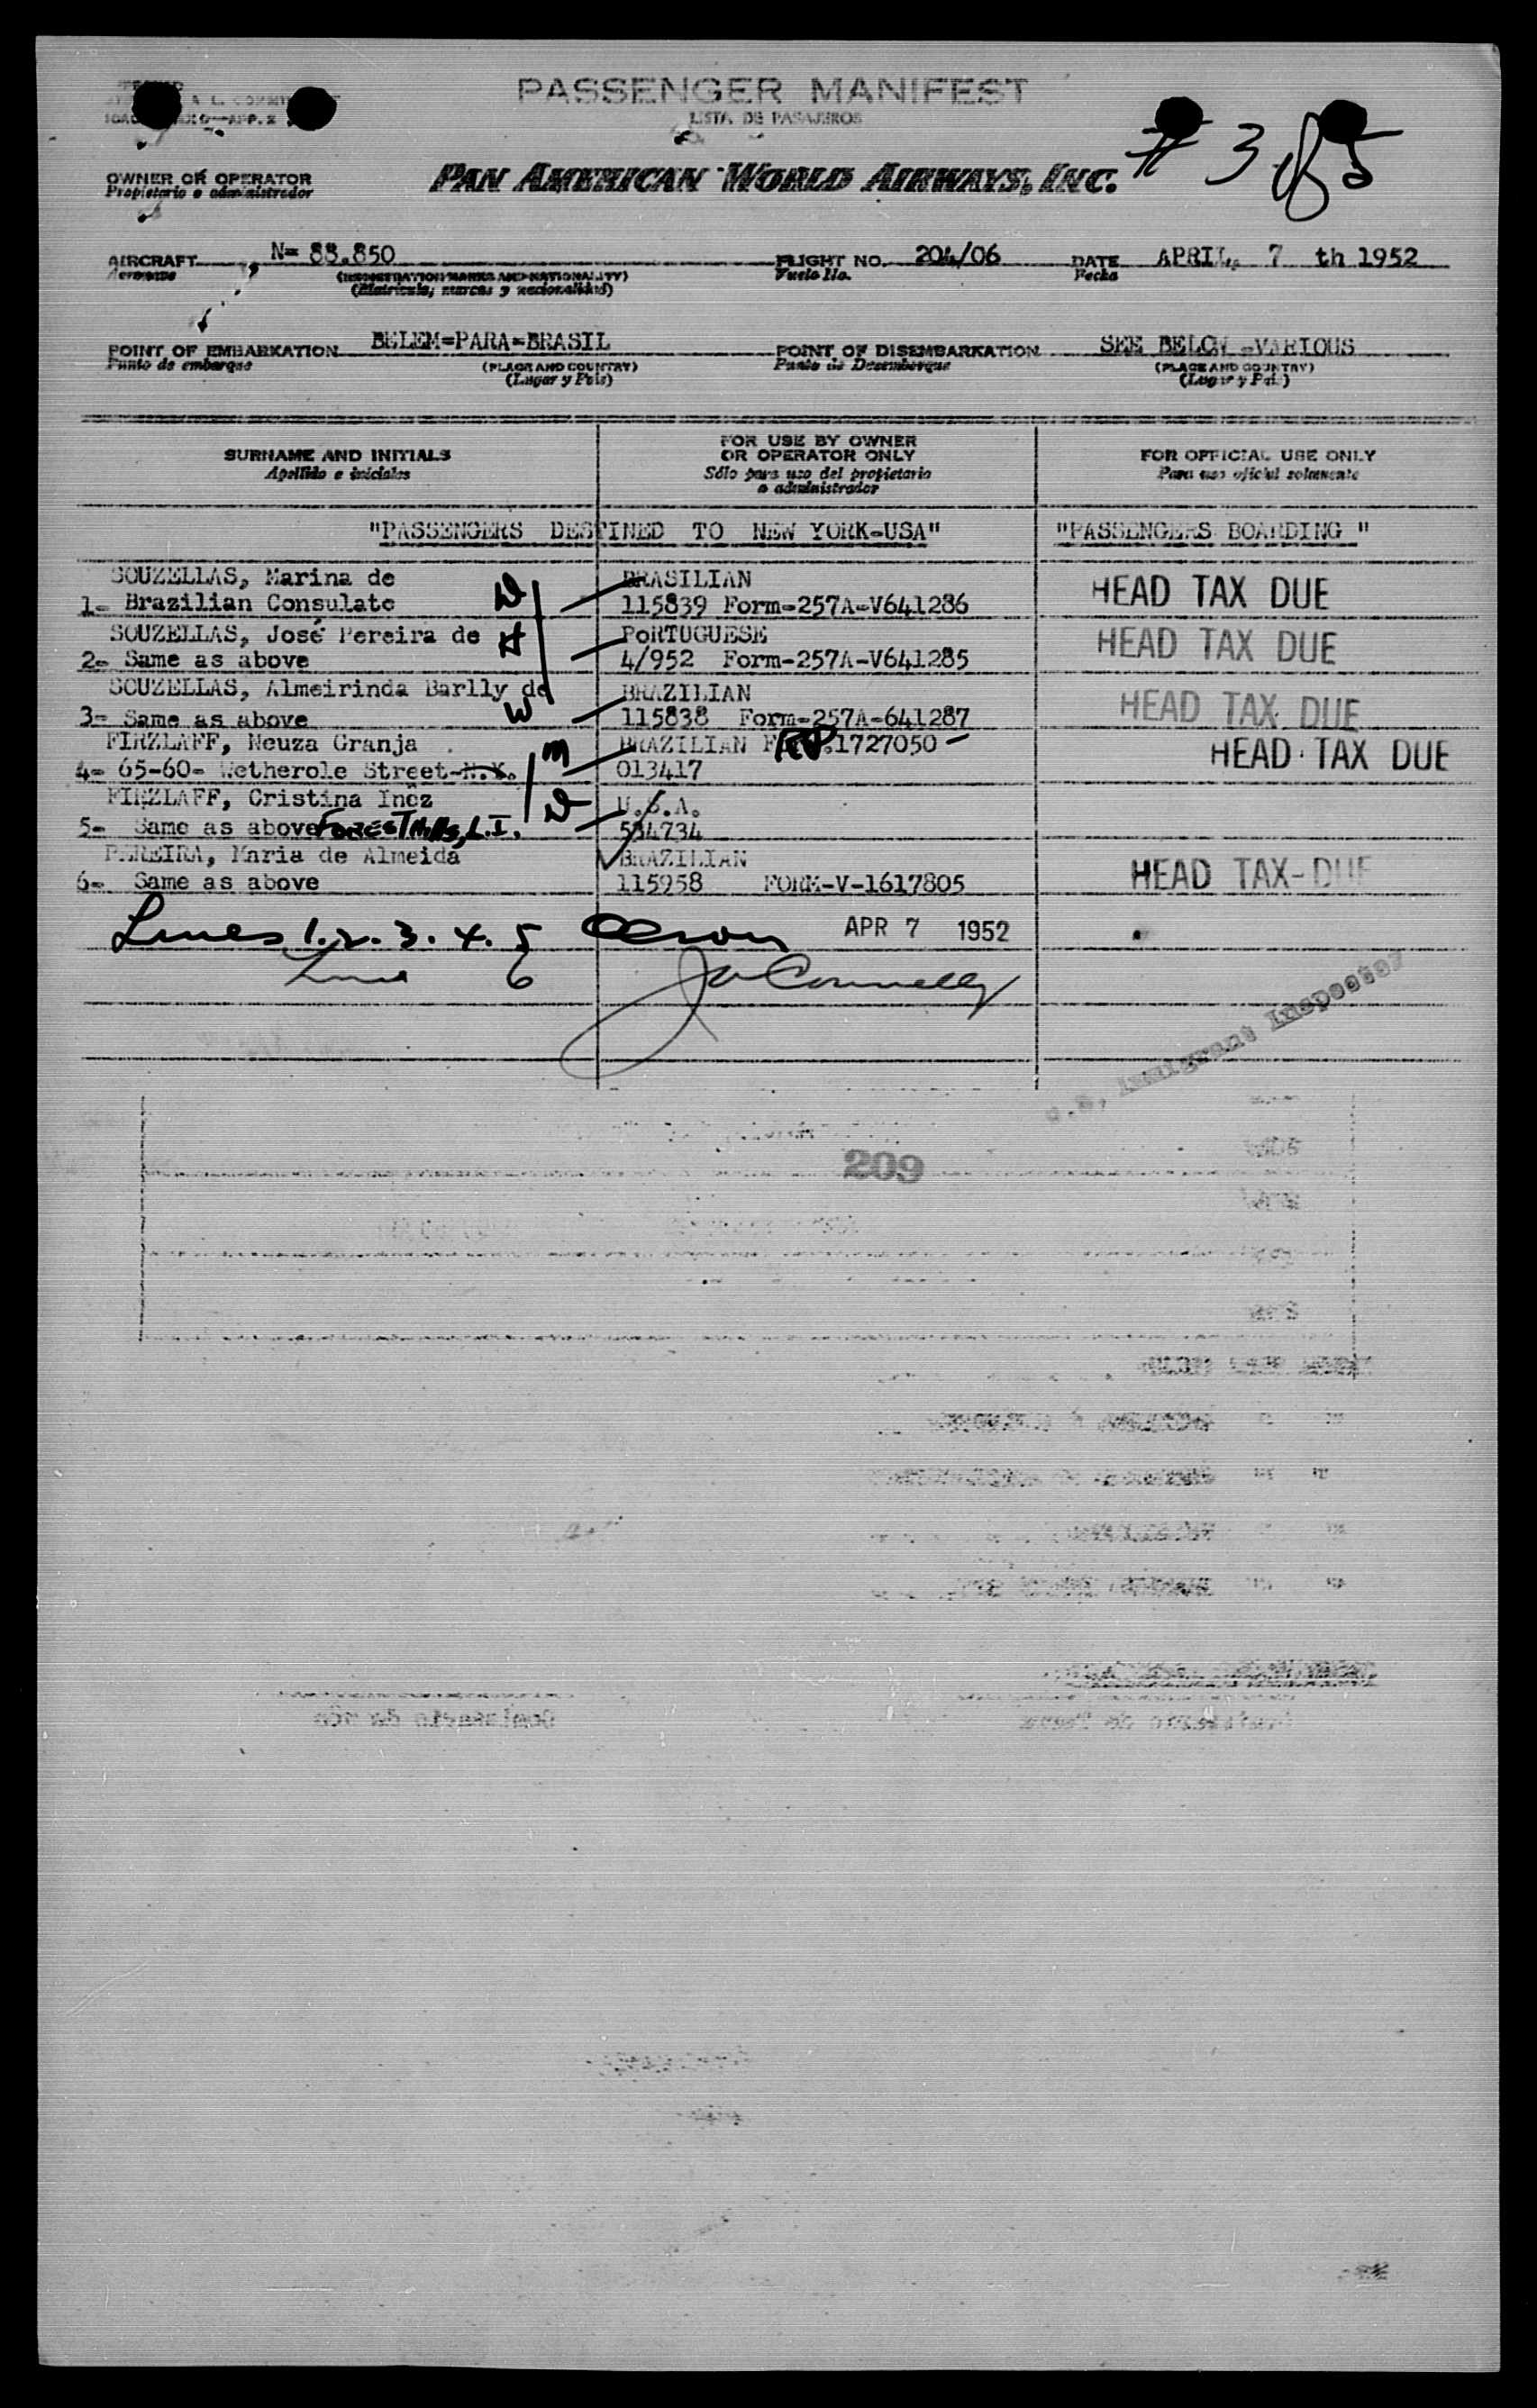 PASSENGER MANIFEST
LISTA DE PASAJEROS
# 3 of 5
OWNER OR OPERATOR
Propietario o administrador
PAN AMERICAN WORLD AIRWAYS, INC.
AIRCRAFT N= 88.850 FLIGHT NO. 204/06 DATE APRIL, 7 th 1952
Aeronave (REGISTRATION MARKS AND NATIONALITY) Vuelo No. Fecha
(Matrícula, marcas y nacionalidad)
POINT OF EMBARKATION BELEM=PARA=BRASIL POINT OF DISEMBARKATION SEE BELOW =VARIOUS
Punto de embarque (PLACE AND COUNTRY) Punto de Desembarque (PLACE AND COUNTRY)
(Lugar y País) (Lugar y País)
SURNAME AND INITIALS
Apellido e iniciales
FOR USE BY OWNER
OR OPERATOR ONLY
Sólo para uso del propietario
o administrador
FOR OFFICIAL USE ONLY
Para uso oficial solamente
"PASSENGERS DESTINED TO NEW YORK=USA" "PASSENGERS BOARDING "
SOUZELLAS, Marina de BRASILIAN
1= Brazilian Consulate D 115839 Form=257A=V641286 HEAD TAX DUE
SOUZELLAS, José Pereira de H PORTUGUESE
2= Same as above 4/952 Form-257A-V641285 HEAD TAX DUE
SOUZELLAS, Almeirinda Barlly de BRAZILIAN
3= Same as above W 115838 Form=257A-641287 HEAD TAX DUE
FIRZLAFF, Neuza Granja M BRAZILIAN RP.1727050 -
4= 65-60= Wetherole Street-N.Y. 013417 HEAD TAX DUE
FIRZLAFF, Cristina Inêz D U.S.A.
5= Same as above FOREST Hills, L.I. 534734
PEREIRA, Maria de Almeida BRAZILIAN
6= Same as above 115958 FORM-V-1617805 HEAD TAX-DUE
Lines 1. 2. 3. 4. 5 APR 7 1952
Line 6 Connelly
U.S. Immigrant Inspector
209